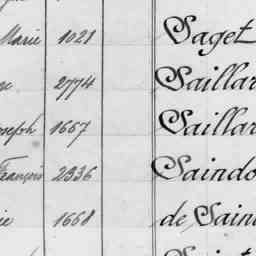 Marie 1021 Saget
2774 Saillar
oseph 1667 Saillar
François 2336 Saindo
ie 1668 de Sain